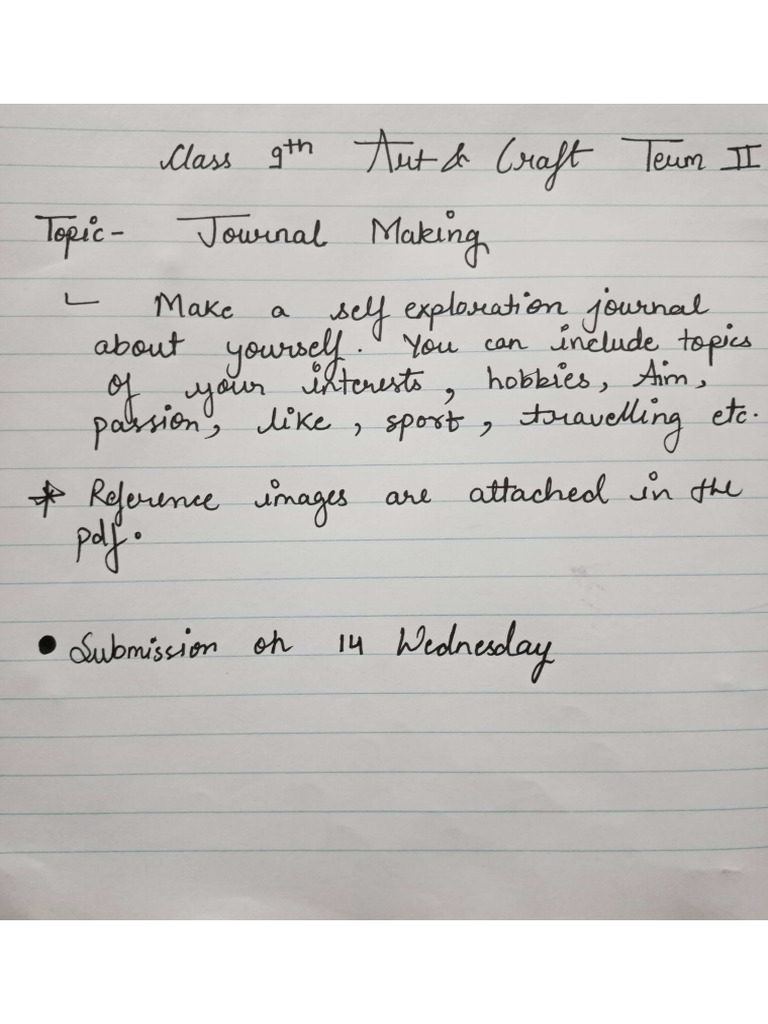 Class 9th Art & Craft Term II
Topic- Journal Making
Make a self exploration journal
about yourself. You can include topics
of your interests, hobbies, Aim,
passion, like, sport, travelling etc.
* Reference images are attached in the
pdf.
• Submission on 14 Wednesday